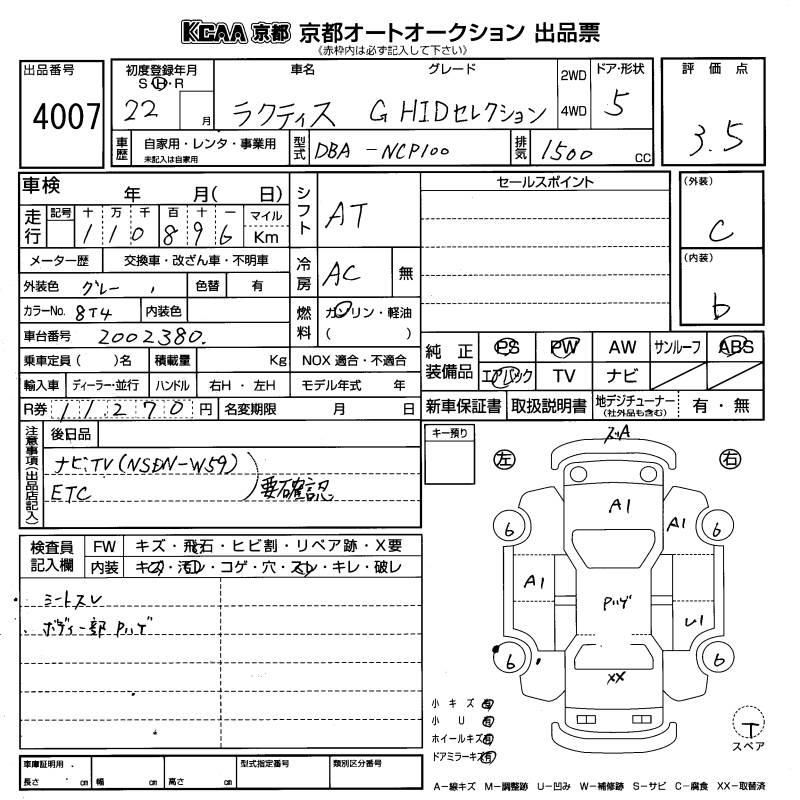 KCAA 京都 京都オートオークション 出品票
《赤枠内は必ず記入して下さい》
出品番号 4007
初度登録年月 S・H・R 22 月
車名 グレード ラクティス G HIDセレクション
2WD 4WD
ドア・形状 5
評価点 3.5
車歴 自家用・レンタ・事業用 未記入は自家用
型式 DBA-NCP100
排気 1500 cc
車検 年 月( 日)
シフト AT
セールスポイント
(外装) C
走行 記号 十 万 千 百 十 一 マイル Km
1 1 0 8 9 6
メーター歴 交換車・改ざん車・不明車
冷房 AC 無
(内装) b
外装色 グレー 色替 有
燃料 ガソリン・軽油 ( )
カラーNo. 8T4 内装色
車台番号 2002380.
純正装備品 PS PW AW サンルーフ ABS
エアバック TV ナビ
乗車定員( )名 積載量 Kg NOX 適合・不適合
輸入車 ディーラー・並行 ハンドル 右H・左H モデル年式 年
R券 11270 円 名変期限 月 日
新車保証書 取扱説明書 地デジチューナー (社外品も含む) 有・無
注意事項(出品店記入) 後日品
ナビTV(NSDN-W59)
ETC
要確認
キー預り
左 右
検査員記入欄 FW キズ・飛石・ヒビ割・リペア跡・X要
内装 キズ・汚れ・コゲ・穴・スレ・キレ・破レ
シートスレ
ボディ一部Pハゲ
ズリA
A1
A1
6 6
A1
Pハゲ
U1
6 6
XX
小キズ 有
小U 有
ホイールキズ 有
ドアミラーキズ 有
T
スペア
車庫証明用 長さ cm 幅 cm 高さ cm 型式指定番号 類別区分番号
A−線キズ M−調整跡 U−凹み W−補修跡 S−サビ C−腐食 XX−取替済